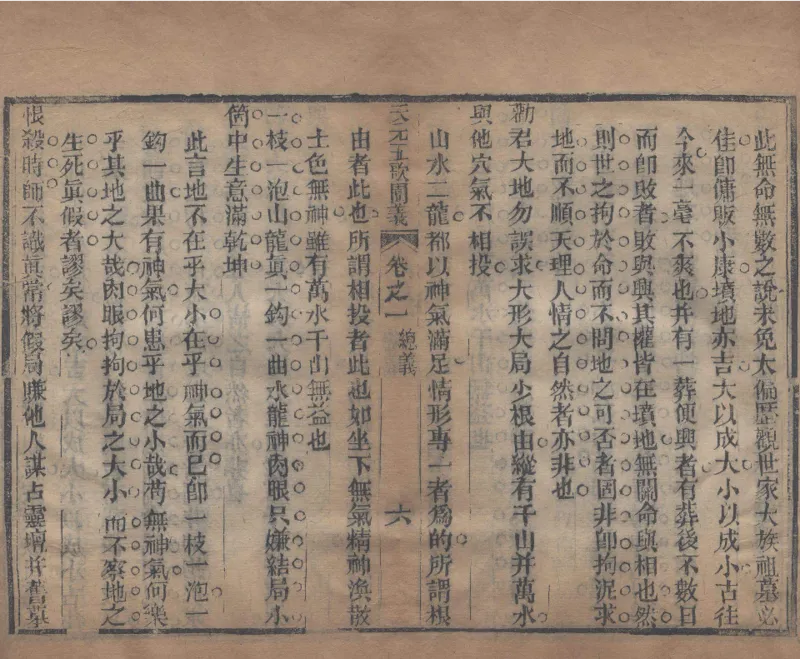 此無命無數之說未免太偏歷觀世家大族祖墓必
佳卽傭販小康墳地亦吉大以成大小以成小古往
今來一毫不爽也并有一葬便興者有葬後不數日
而卽敗者敗與興其權皆在墳地無關命與相也然
則世之拘於命而不問地之可否者固非卽拘泥求
地而不順天理人情之自然者亦非也
勸君大地勿誤求大形大局少根由縱有千山并萬水
與他穴氣不相投
山水二龍都以神氣滿足情形專一者爲的所謂根
天元五歌闡義 卷之一 總義 六
由者此也所謂相投者此也如坐下無氣精神渙散
土色無神雖有萬水千山無益也
一枝一泡山龍眞一鈎一曲水龍神肉眼只嫌結局小
箇中生意滿乾坤
此言地不在乎大小在乎神氣而已卽一枝一泡一
鈎一曲果有神氣何患乎地之小哉苟無神氣何樂
乎其地之大哉肉眼拘拘於局之大小而不察地之
生死眞假者謬矣謬矣
恨殺時師不識眞常將假局賺他人謀占靈壇幷舊墓